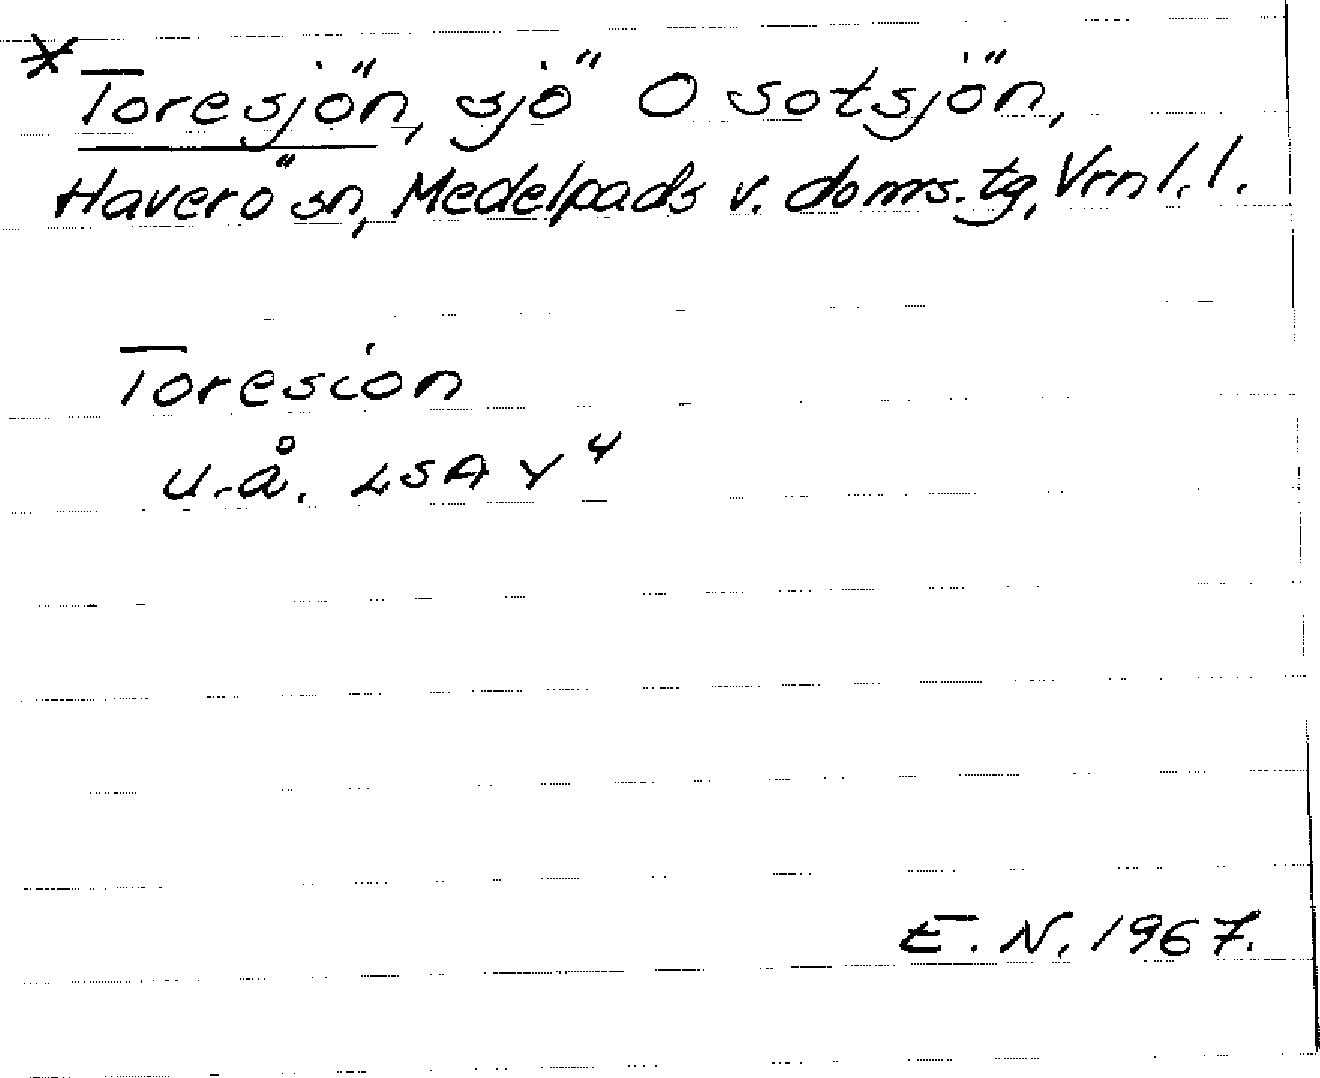 * Toresjön, sjö O Sotsjön,
Haverö sn, Medelpads v. doms.tg, Vrnl. l.
Toresion
u.å. LSA Y 4
E. N. 1967.